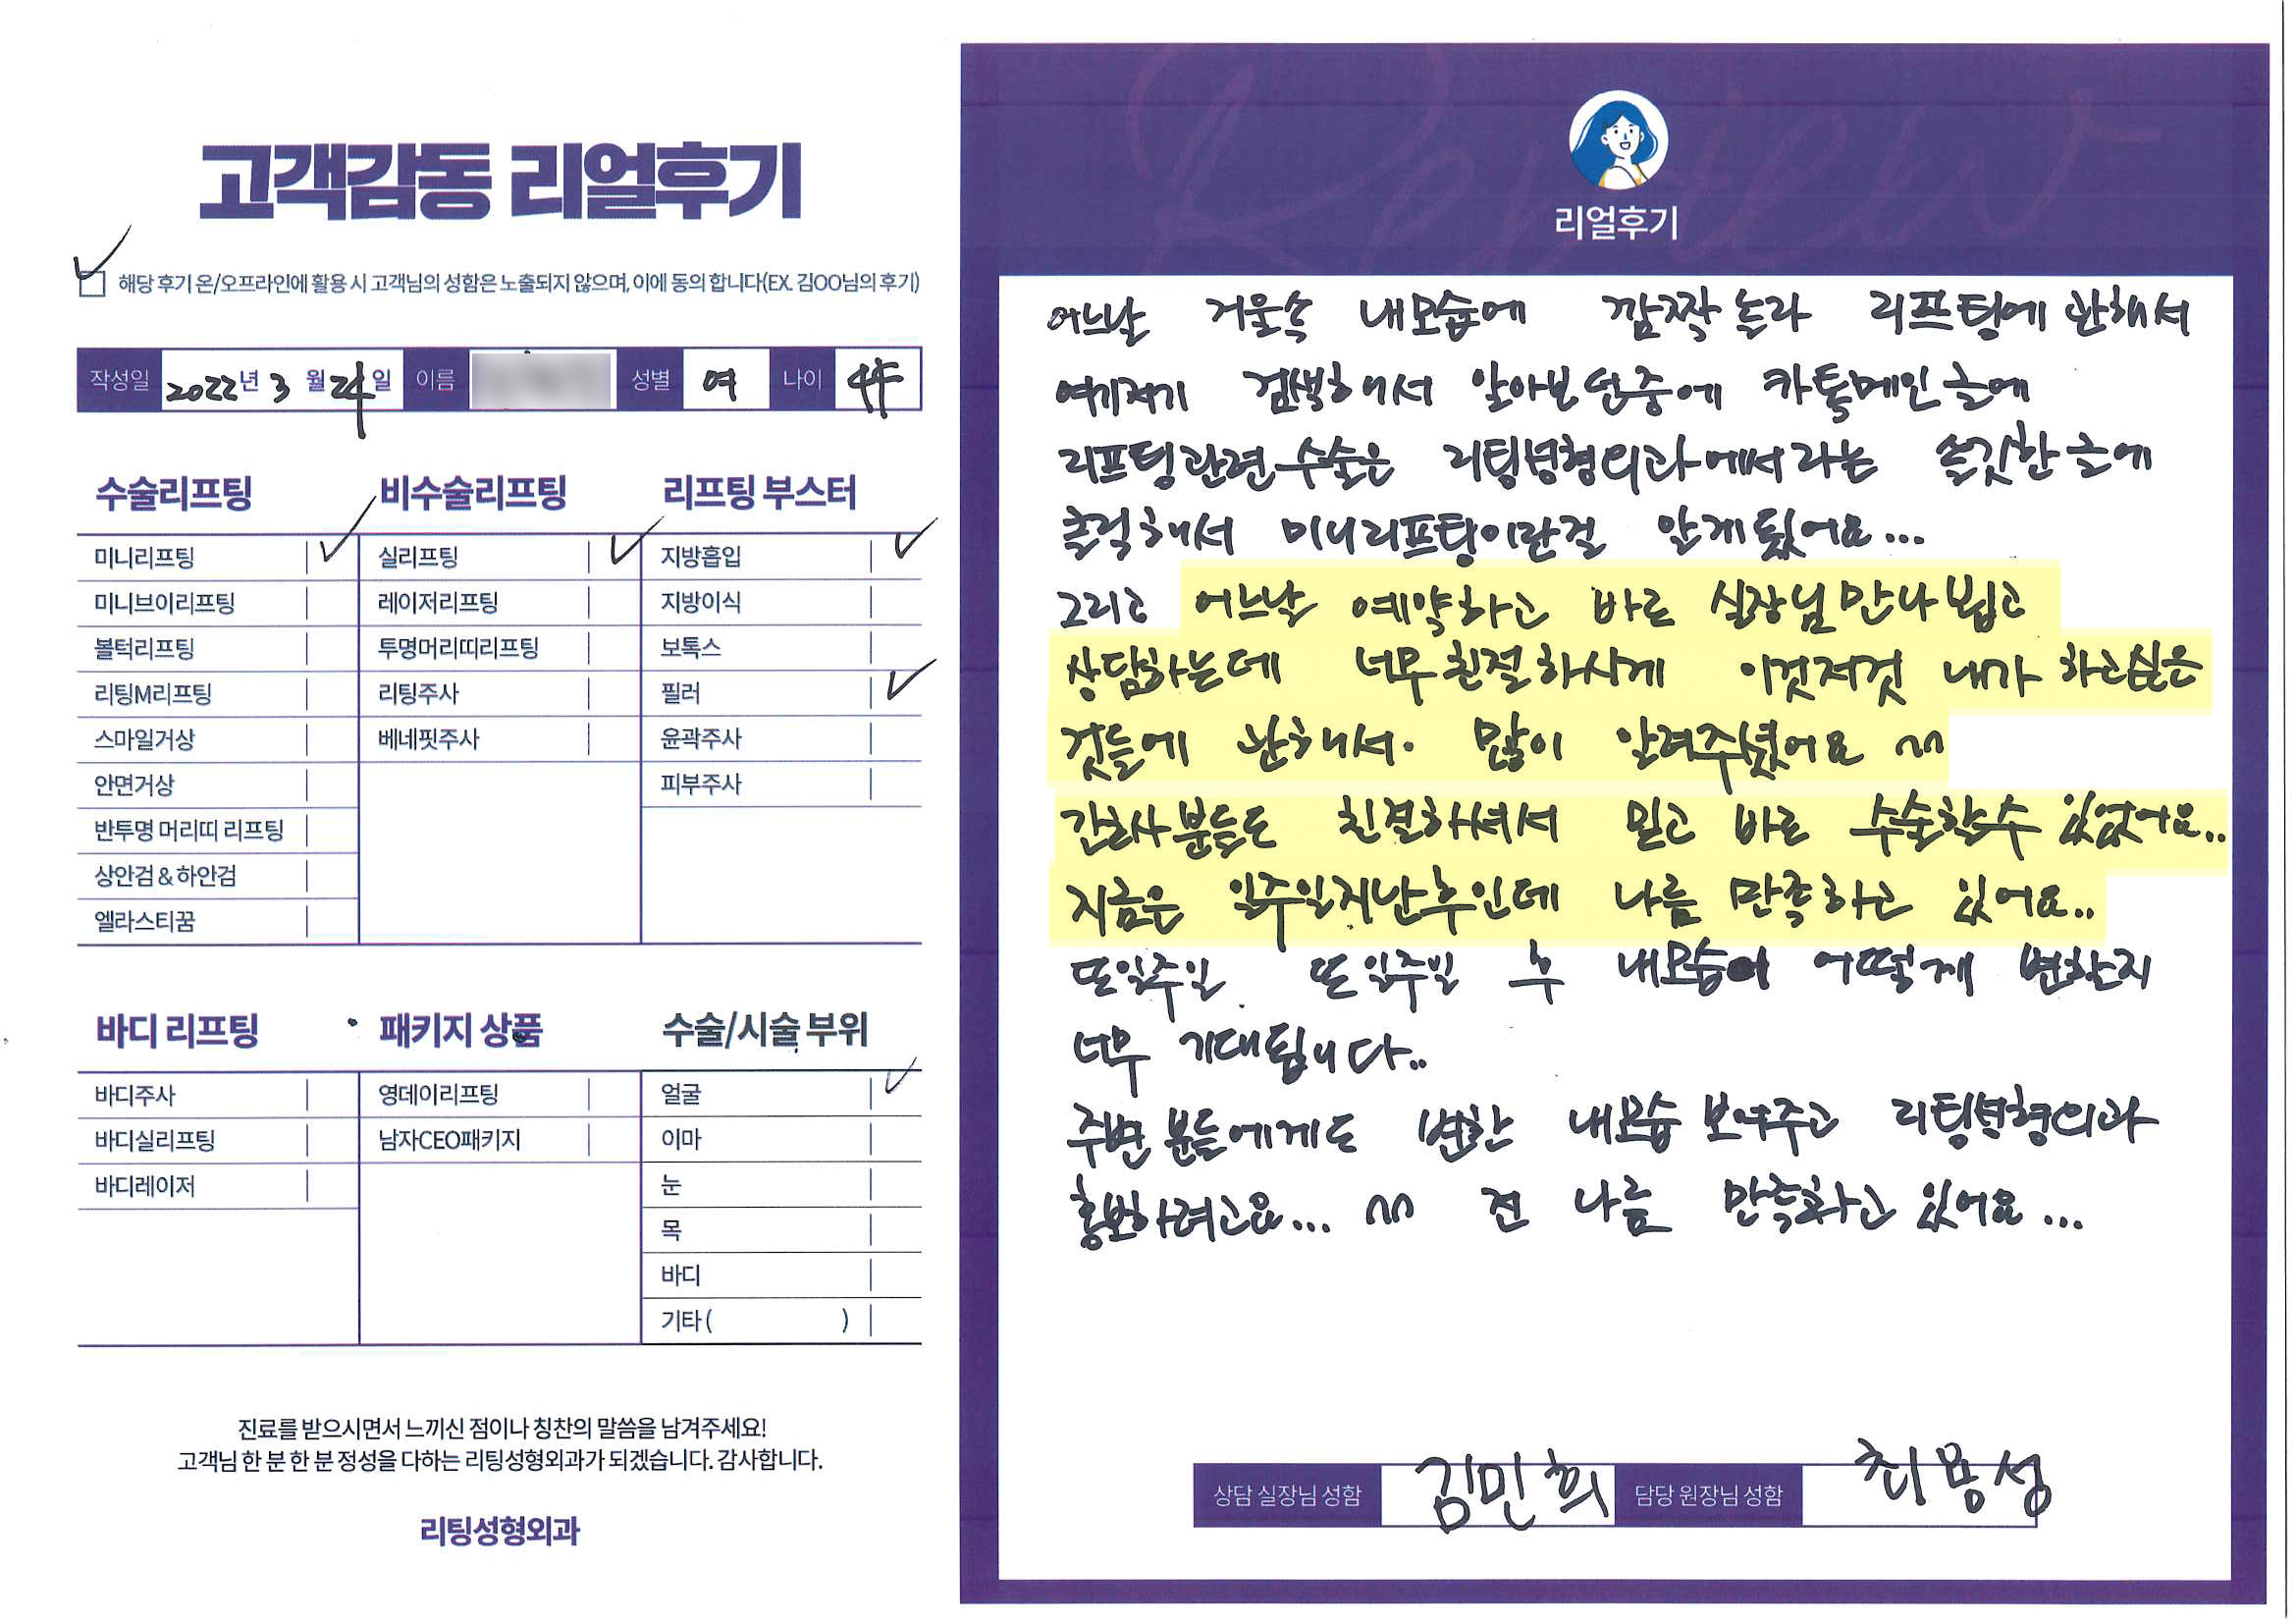 고객감동 리얼후기
해당 후기 온/오프라인에 활용 시 고객님의 성함은 노출되지 않으며, 이에 동의 합니다(EX. 김OO님의 후기)
작성일 2022년 3월 24일 이름 성별 여 나이 44
수술리프팅
미니리프팅
미니브이리프팅
볼턱리프팅
리팅M리프팅
스마일거상
안면거상
반투명 머리띠 리프팅
상안검 & 하안검
엘라스티꿈
비수술리프팅
실리프팅
레이저리프팅
투명머리띠리프팅
리팅주사
베네핏주사
리프팅 부스터
지방흡입
지방이식
보톡스
필러
윤곽주사
피부주사
바디 리프팅
바디주사
바디실리프팅
바디레이저
패키지 상품
영데이리프팅
남자CEO패키지
수술/시술 부위
얼굴
이마
눈
목
바디
기타 ( )
진료를 받으시면서 느끼신 점이나 칭찬의 말씀을 남겨주세요!
고객님 한 분 한 분 정성을 다하는 리팅성형외과가 되겠습니다. 감사합니다.
리팅성형외과
Review
리얼후기
어느날 거울속 내모습에 깜짝 놀라 리프팅에 관해서
여기저기 검색해서 알아보던중에 카톡메인글에
리프팅관련수술은 리팅성형외과에서라는 솔깃한 글에
클릭해서 미니리프팅이란걸 알게됬어요...
그리고 어느날 예약하고 바로 실장님만나뵙고
상담하는데 너무친절하시게 이것저것 내가 하고싶은
것들에 관해서. 많이 알려주셨어요 ^^
간호사분들도 친절하셔서 믿고 바로 수술할수 있었어요..
지금은 일주일지난후인데 나름 만족하고 있어요..
또일주일 또 일주일 후 내모습이 어떻게 변할지
너무 기대됩니다..
주변분들에게도 변한 내모습 보여주고 리팅성형외과
홍보하려고요... ^^ 전 나름 만족하고 있어요...
상담 실장님 성함 김민희 담당 원장님 성함 최용성